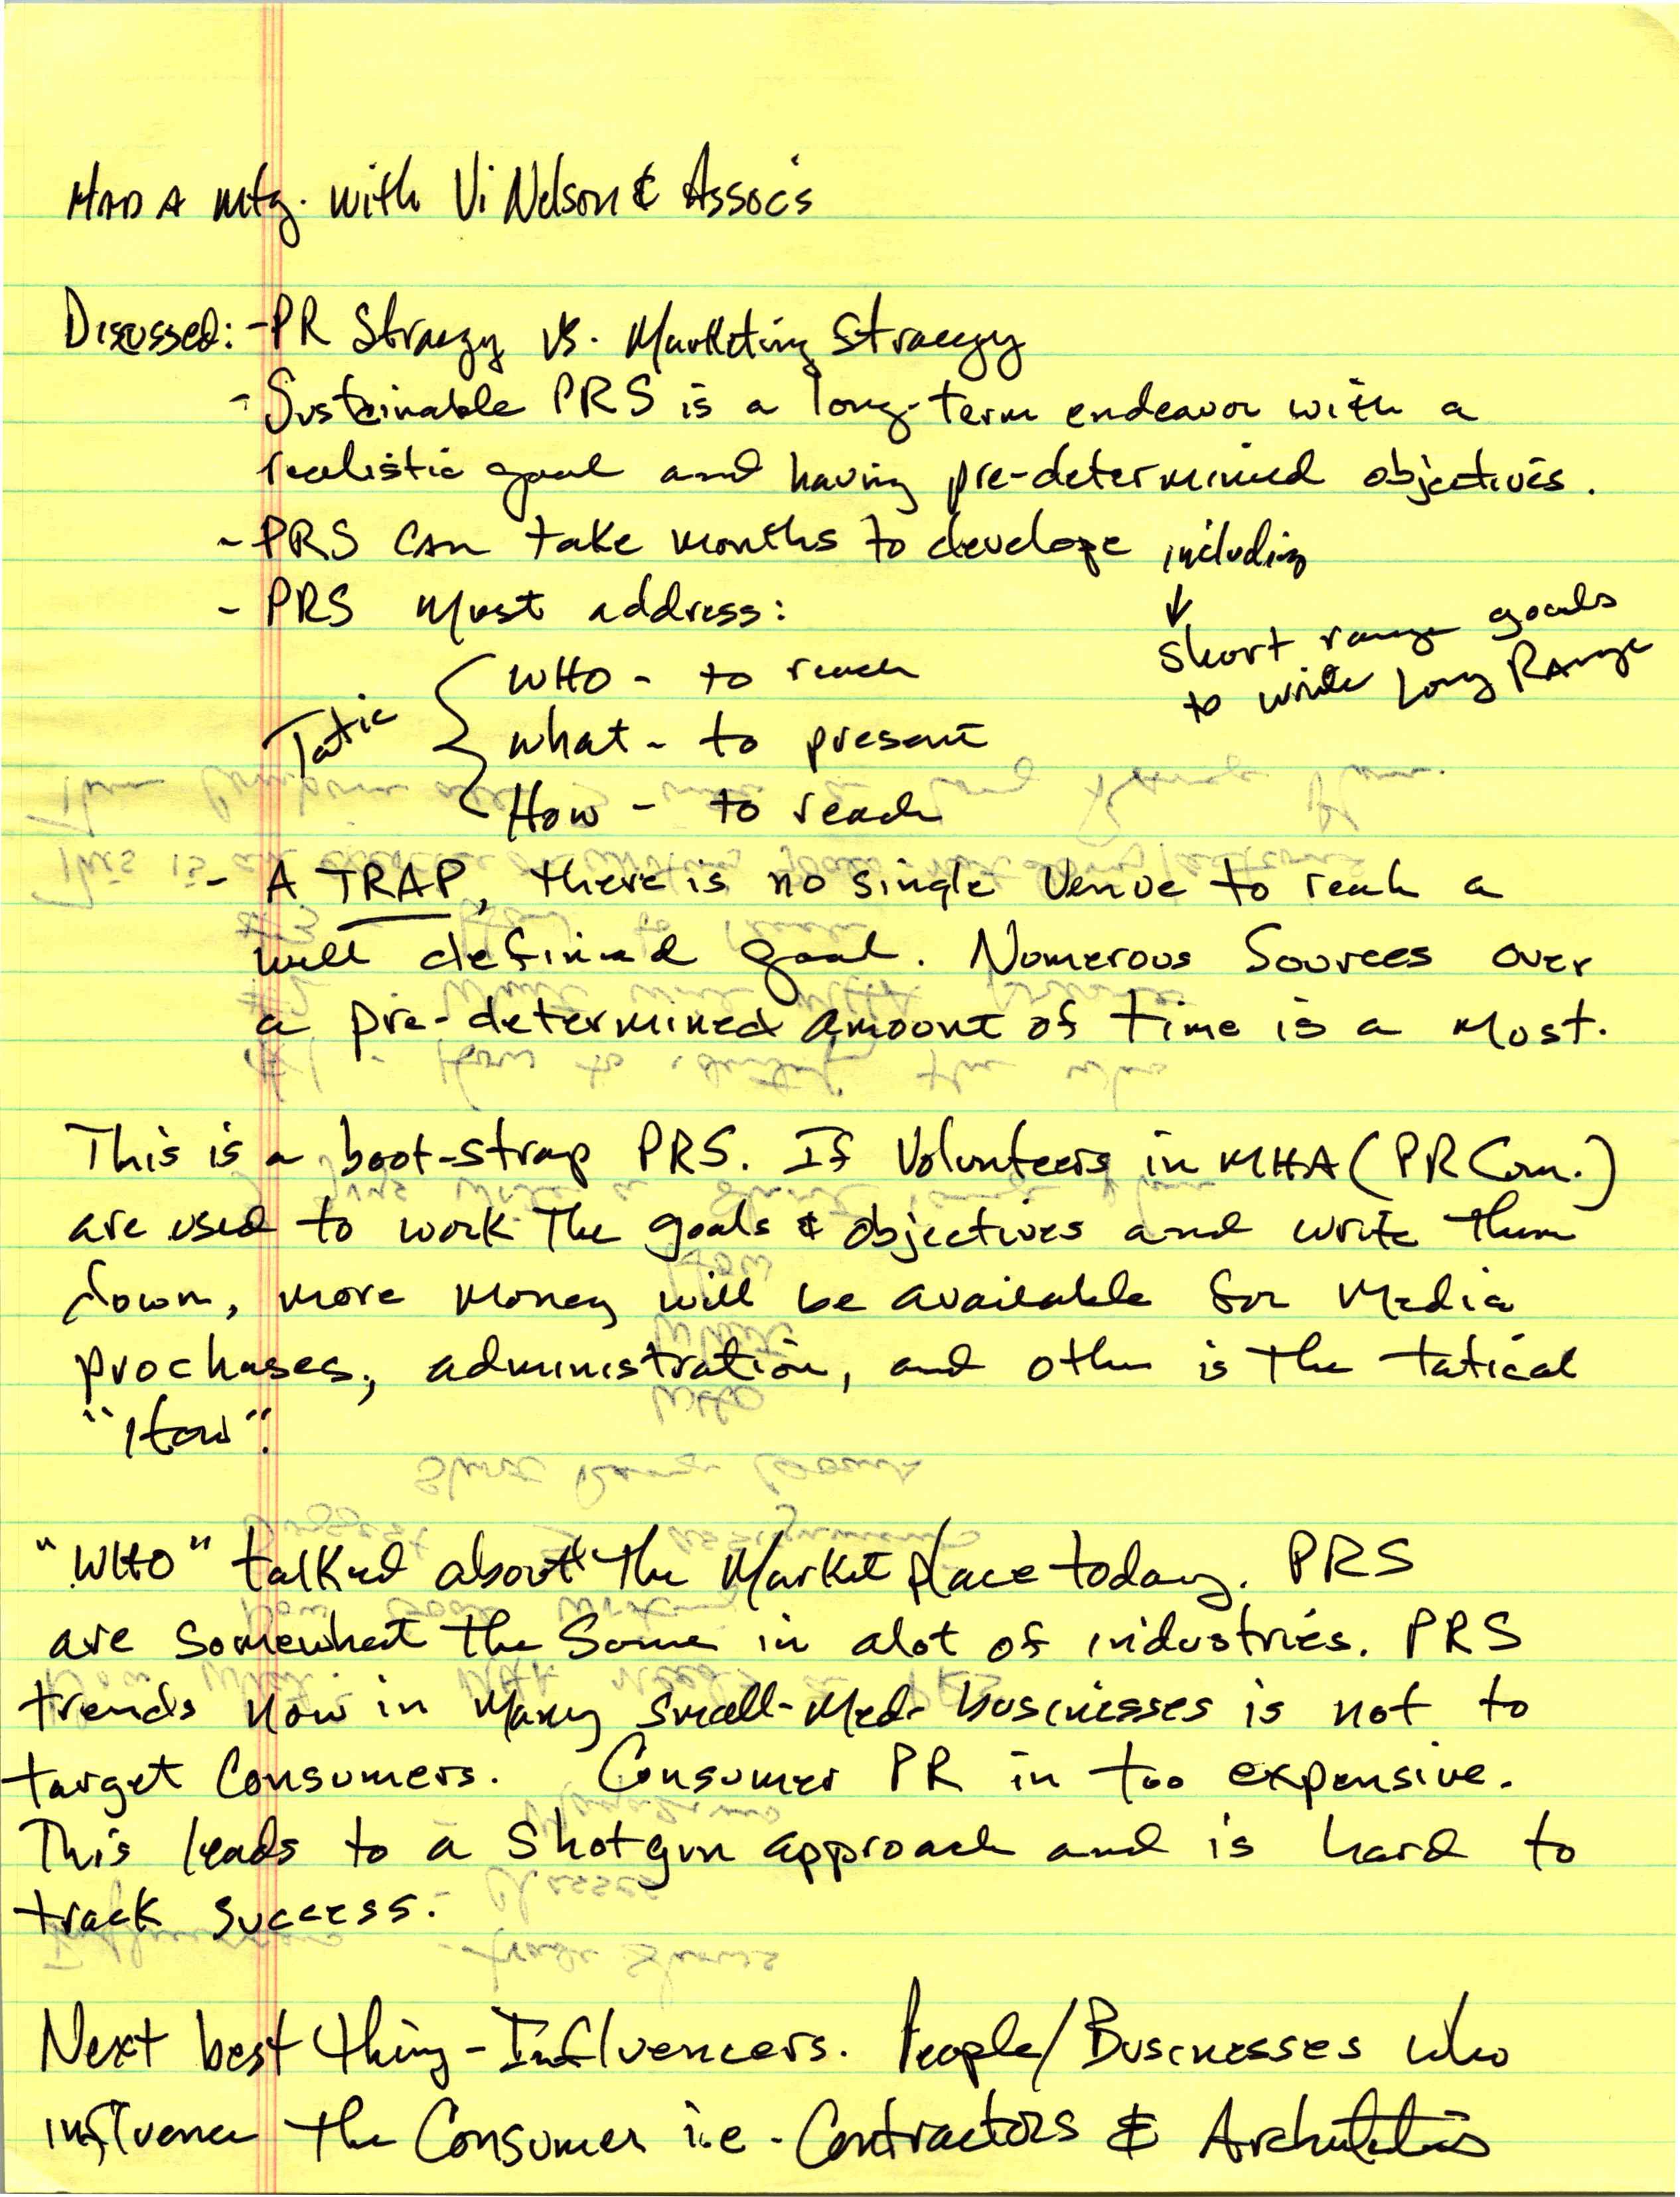 HAD A mtg. with Vi Nelson & Assoc's
Discussed: - PR Straegy vs. Marketing Straegy
- Sustainable PRS is a long-term endeavor with a
realistic goal and having pre-determined objectives.
- PRS can take months to develope including
↓
short range goals
to write Long Range
- PRS Must address:
Tatic { WHO - to reach
what - to present
How - to reach
- A TRAP, there is no single Venue to reah a
well defined goal. Numerous Sources over
a pre-determined amount of time is a Must.
This is a boot-strap PRS. If Volunteers in MHA (PR Com.)
are used to work the goals & objectives and write them
down, more money will be available for Media
prochases, administration, and other is the tatical
"How".
"WHO" talked about the Market place today. PRS
are somewhat the same in alot of industries. PRS
trends now in Many small-Med- businesses is not to
target Consumers. Consumer PR in too expensive.
This leads to a shotgun approach and is hard to
track success.
Next best thing - Influencers. People/Businesses who
influence the Consumer i.e. Contractors & Architects